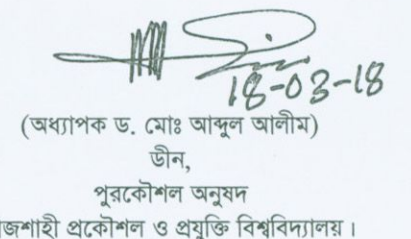 18-03-18
(অধ্যাপক ড. মোঃ আব্দুল আলীম)
ডীন,
পুরকৌশল অনুষদ
জশাহী প্রকৌশল ও প্রযুক্তি বিশ্ববিদ্যালয়।